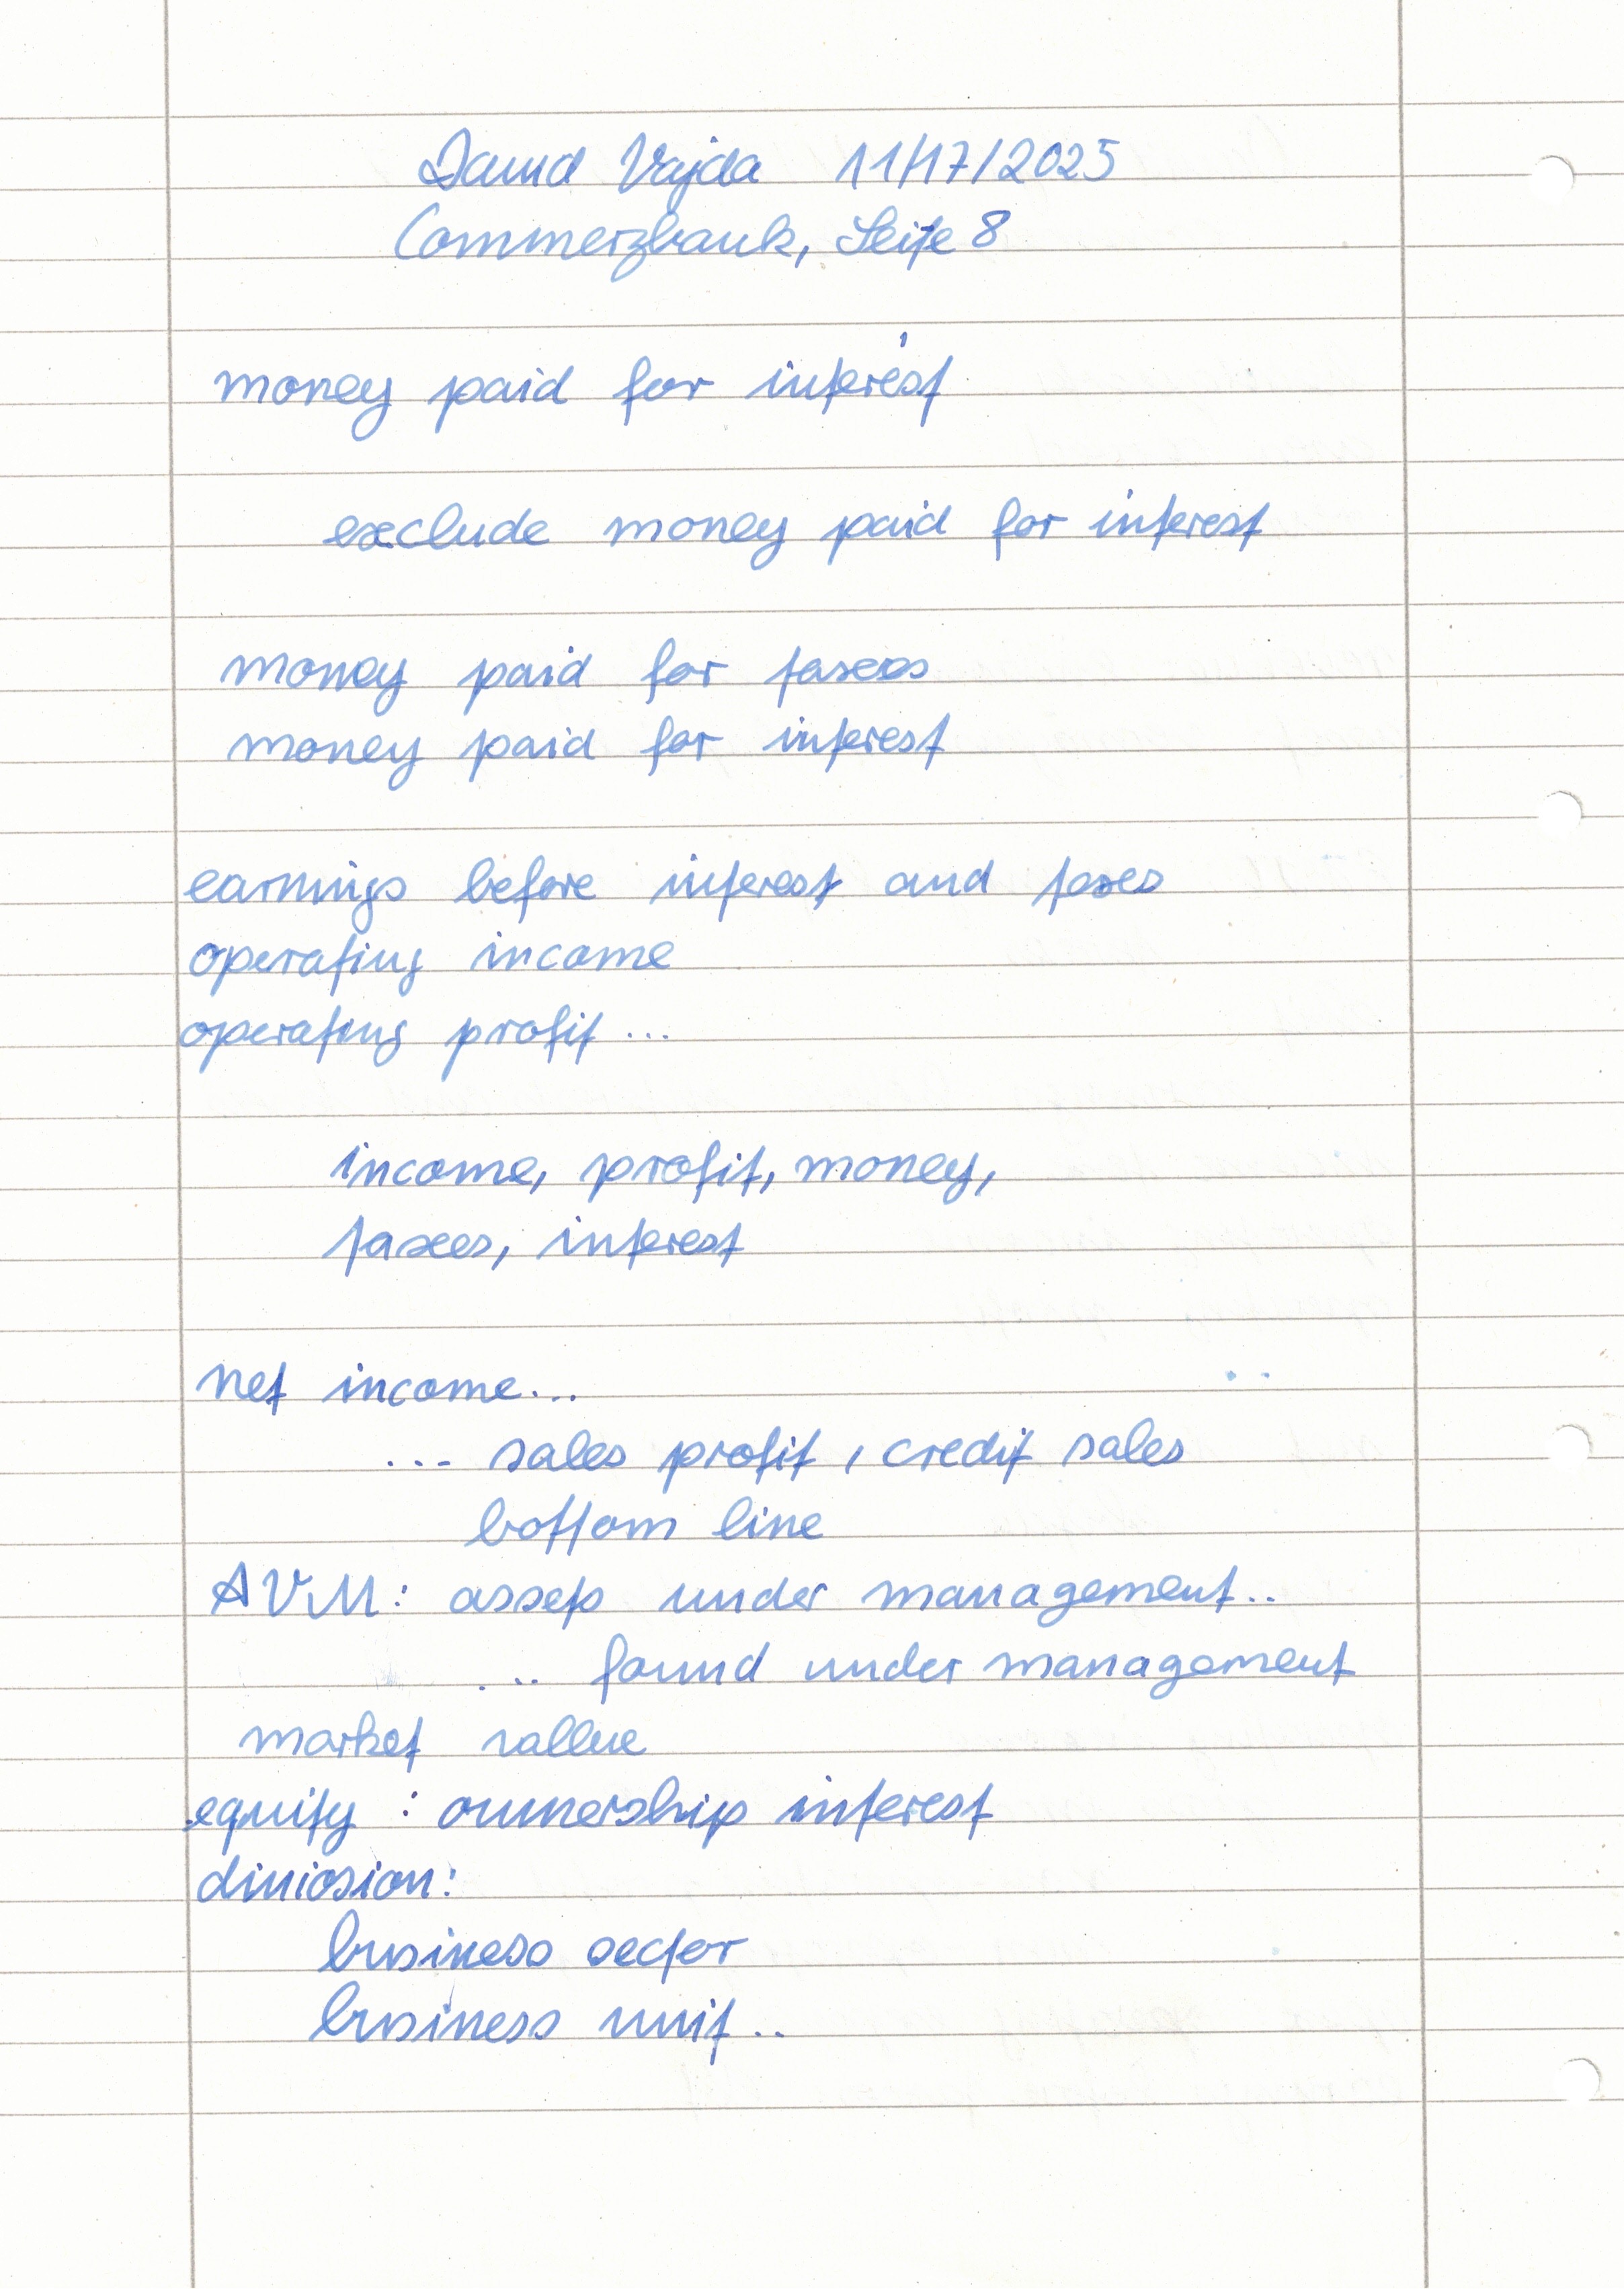 David Vajda 11/17/2025
Commerzbank, Seite 8
money paid for interest
exclude money paid for interest
money paid for taxes
money paid for interest
earnings before interest and taxes
operating income
operating profit ...
income, profit, money,
taxes, interest
net income...
... sales profit, credit sales
bottom line
AUM: assets under management..
... found under management
market vallue
equity : ownership interest
division:
business sector
business unit ..